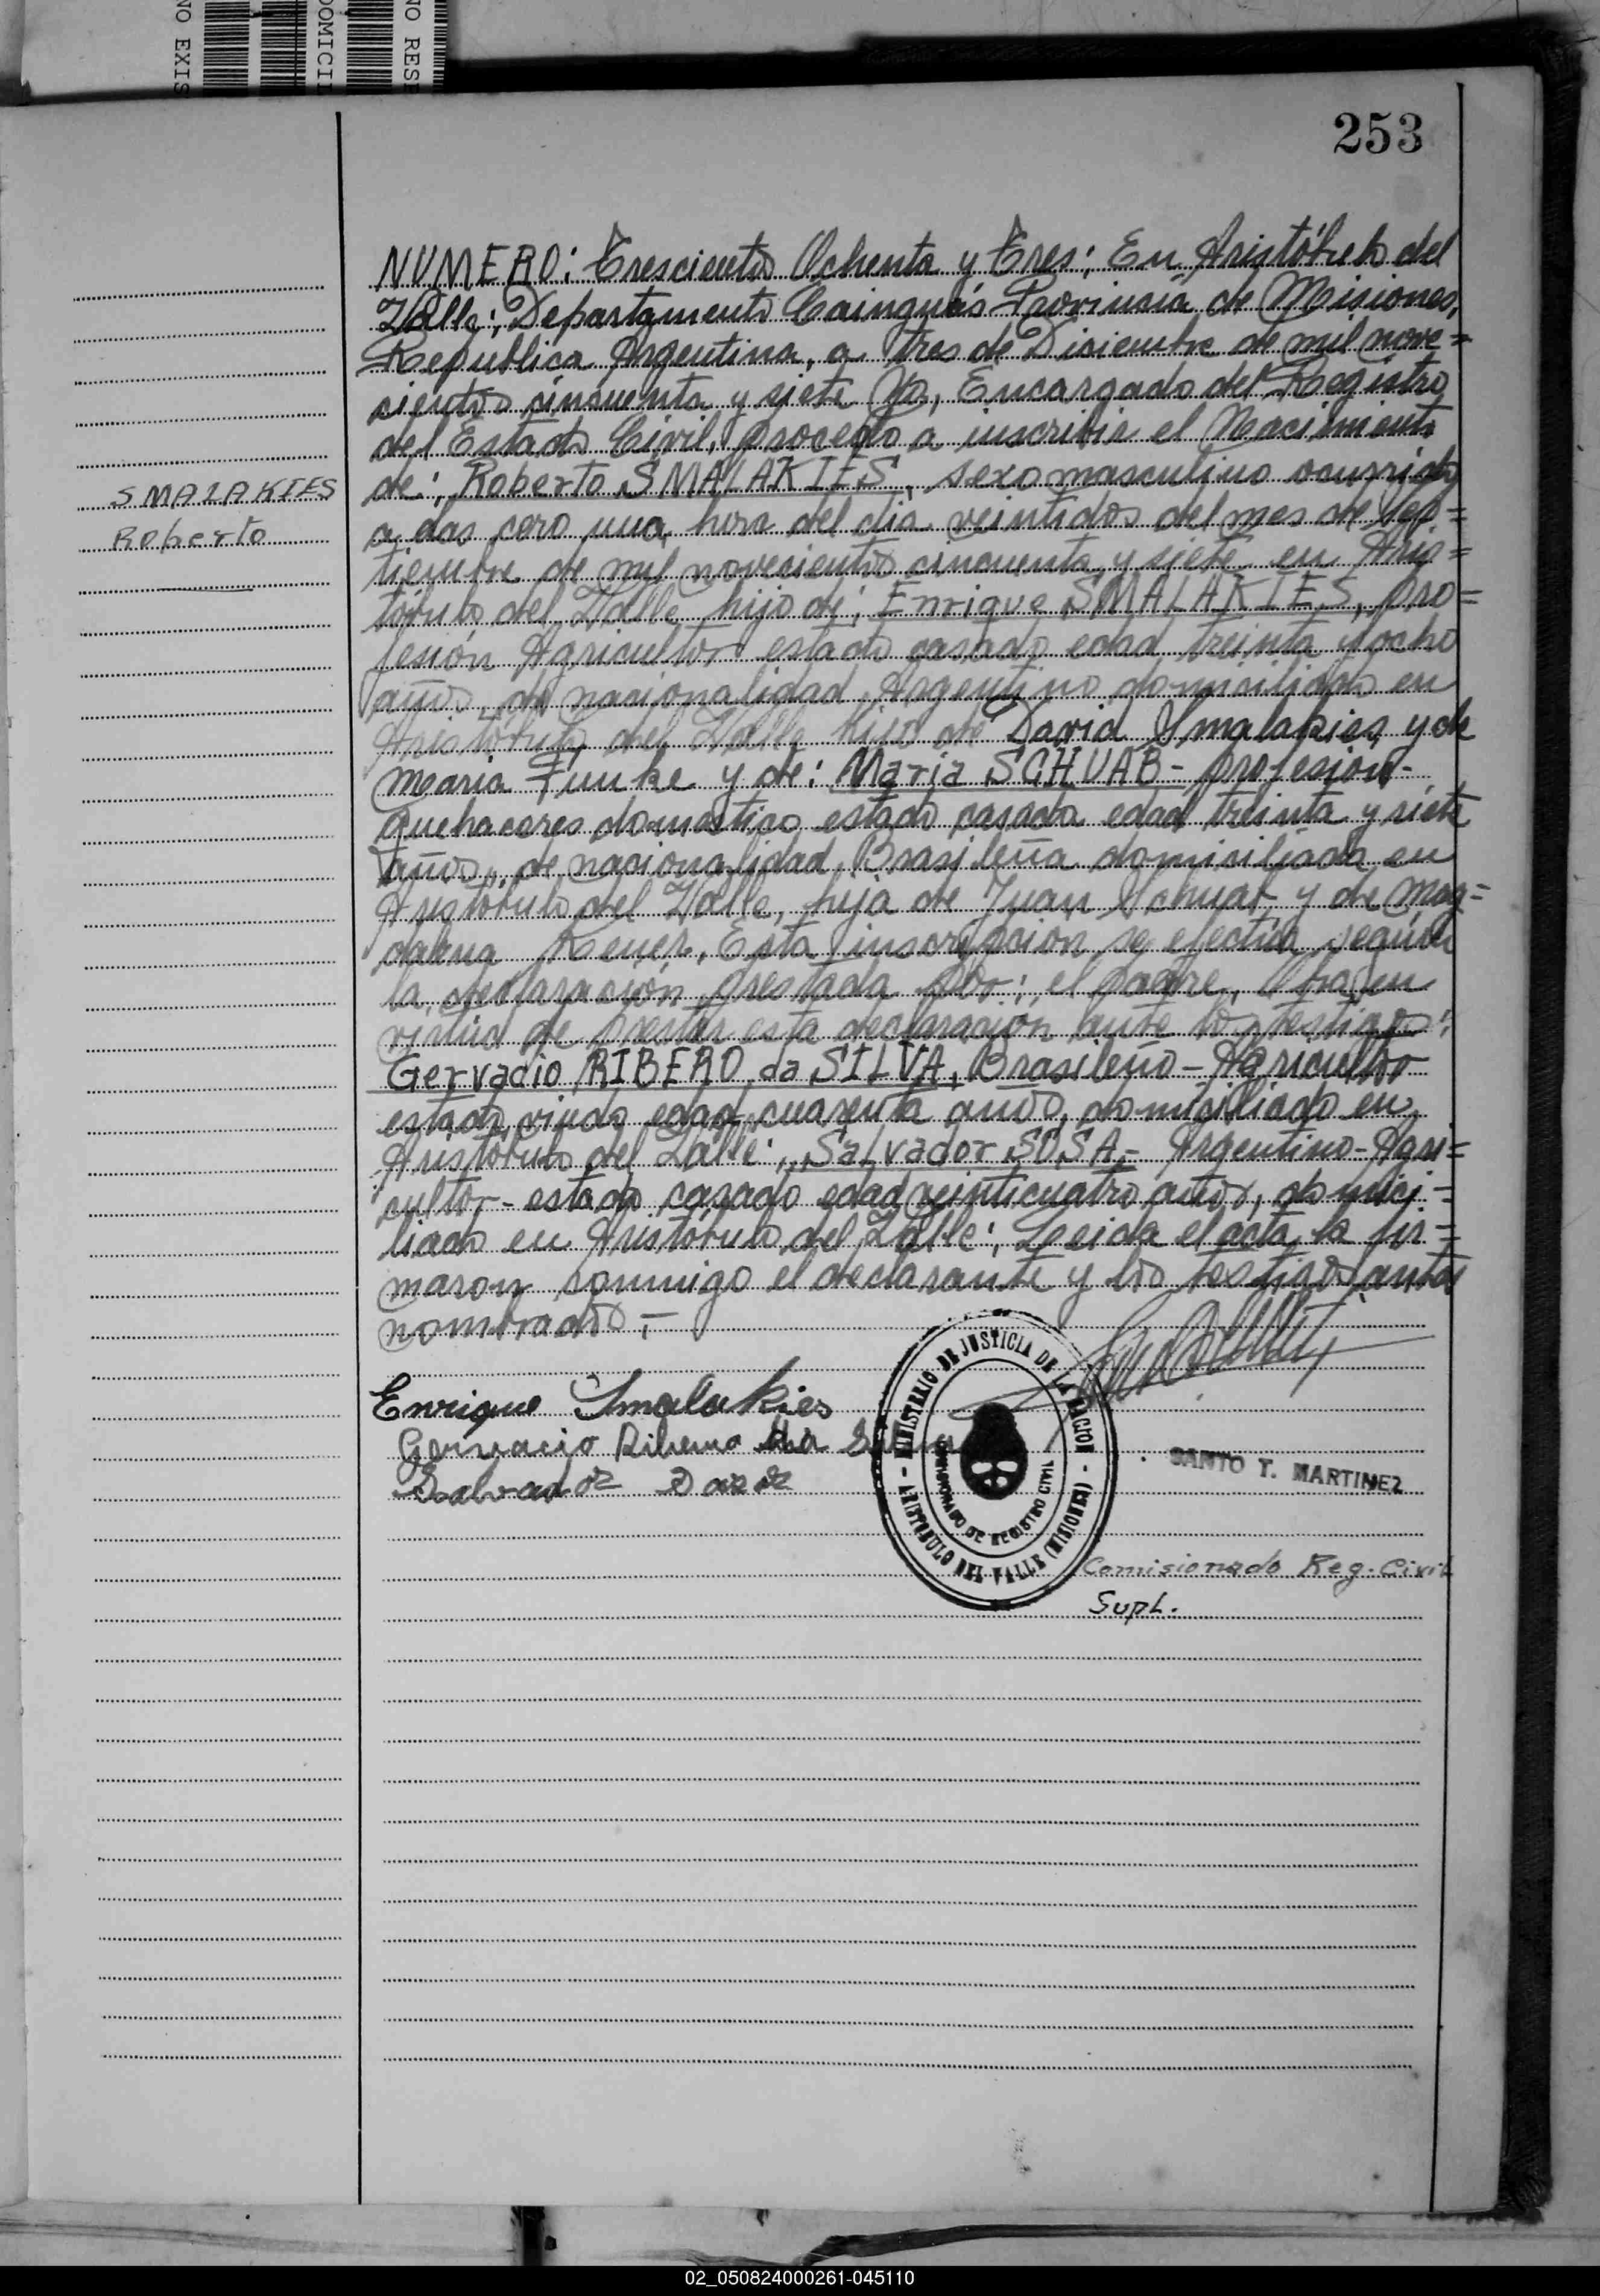 NO EXIS
DOMICI
NO RES
253
NUMERO: Trescientos Ochenta y Tres; En Aristóbulo del
Valle; Departamento Cainguás Provincia de Misiones,
Republica Argentina, a tres de Diciembre de mil nove=
cientos cincuenta y siete Yo, Encargado del Registro
del Estado Civil, procedo a inscribir el Nacimiento
SMALAKIES
de; Roberto SMALAKIES, sexo masculino ocurrido
Roberto
a las cero una hora del dia veintidos del mes de Sep=
tiembre de mil novecientos cincuenta y siete en Aris=
tóbulo del Valle hijo de; Enrique SMALAKIES, pro=
fesión Agricultor estado casado edad treinta y ocho
años, de nacionalidad Argentino domiciliado en
Aristóbulo del Valle hijo de David Smalakies y de
Maria Funke y de: Maria SCHUAB- profesion-
quehaceres domestico estado casada edad treinta y siete
años, de nacionalidad Brasileña domiciliada en
Aristóbulo del Valle, hija de Juan Schuab y de Mag=
dalena Esta inscripcion se efectúa según
la declaración prestada por; el padre, en
virtud de prestar esta declaracion ante los testigos:
Gervacio RIBERO da SILVA, Brasileño - Agricultor
estado viudo edad cuarenta años, domiciliado en
Aristóbulo del Valle; Salvador SOSA,- Argentino-Agri=
cultor - estado casado edad veinticuatro años, domici=
liado en Aristóbulo del Valle; Leeida el acta la fir=
maron conmigo el declarante y los testigos antes
nombrados.-
Enrique Smalakies
Gervacio Ribeiro da Silva
Salvador
MINISTERIO DE JUSTICIA DE LA NACION
COMISIONADO DE REGISTRO CIVIL
ARISTOBULO DEL VALLE (MISIONES)
SANTO T. MARTINEZ
Comisionado Reg. Civil
Supl.
02_050824000261-045110